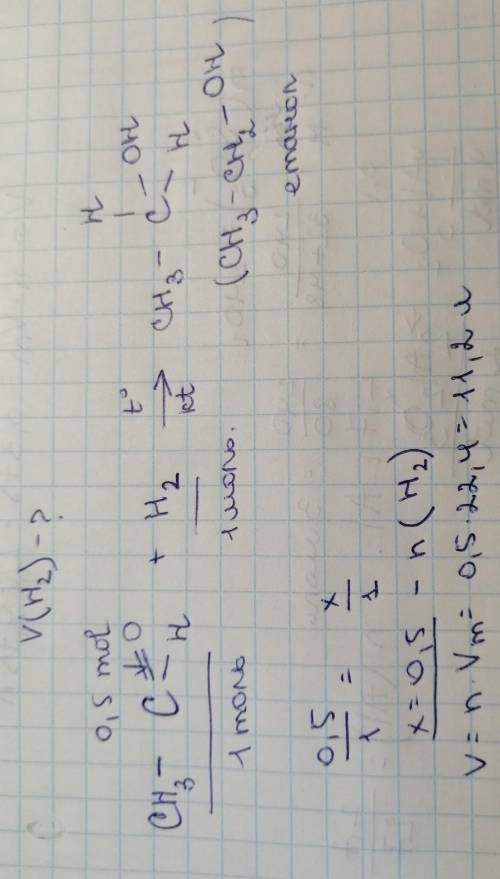 V(H₂) - ?
0,5 mol
CH₃ - C = O + H₂ t° → kt CH₃ - C - OH
- H
H
- H
1 моль
1 моль.
(CH₃ - CH₂ - OH)
етанол
0,5/1 = x/1
x = 0,5 - n(H₂)
V = n · Vm = 0,5 · 22,4 = 11,2 л